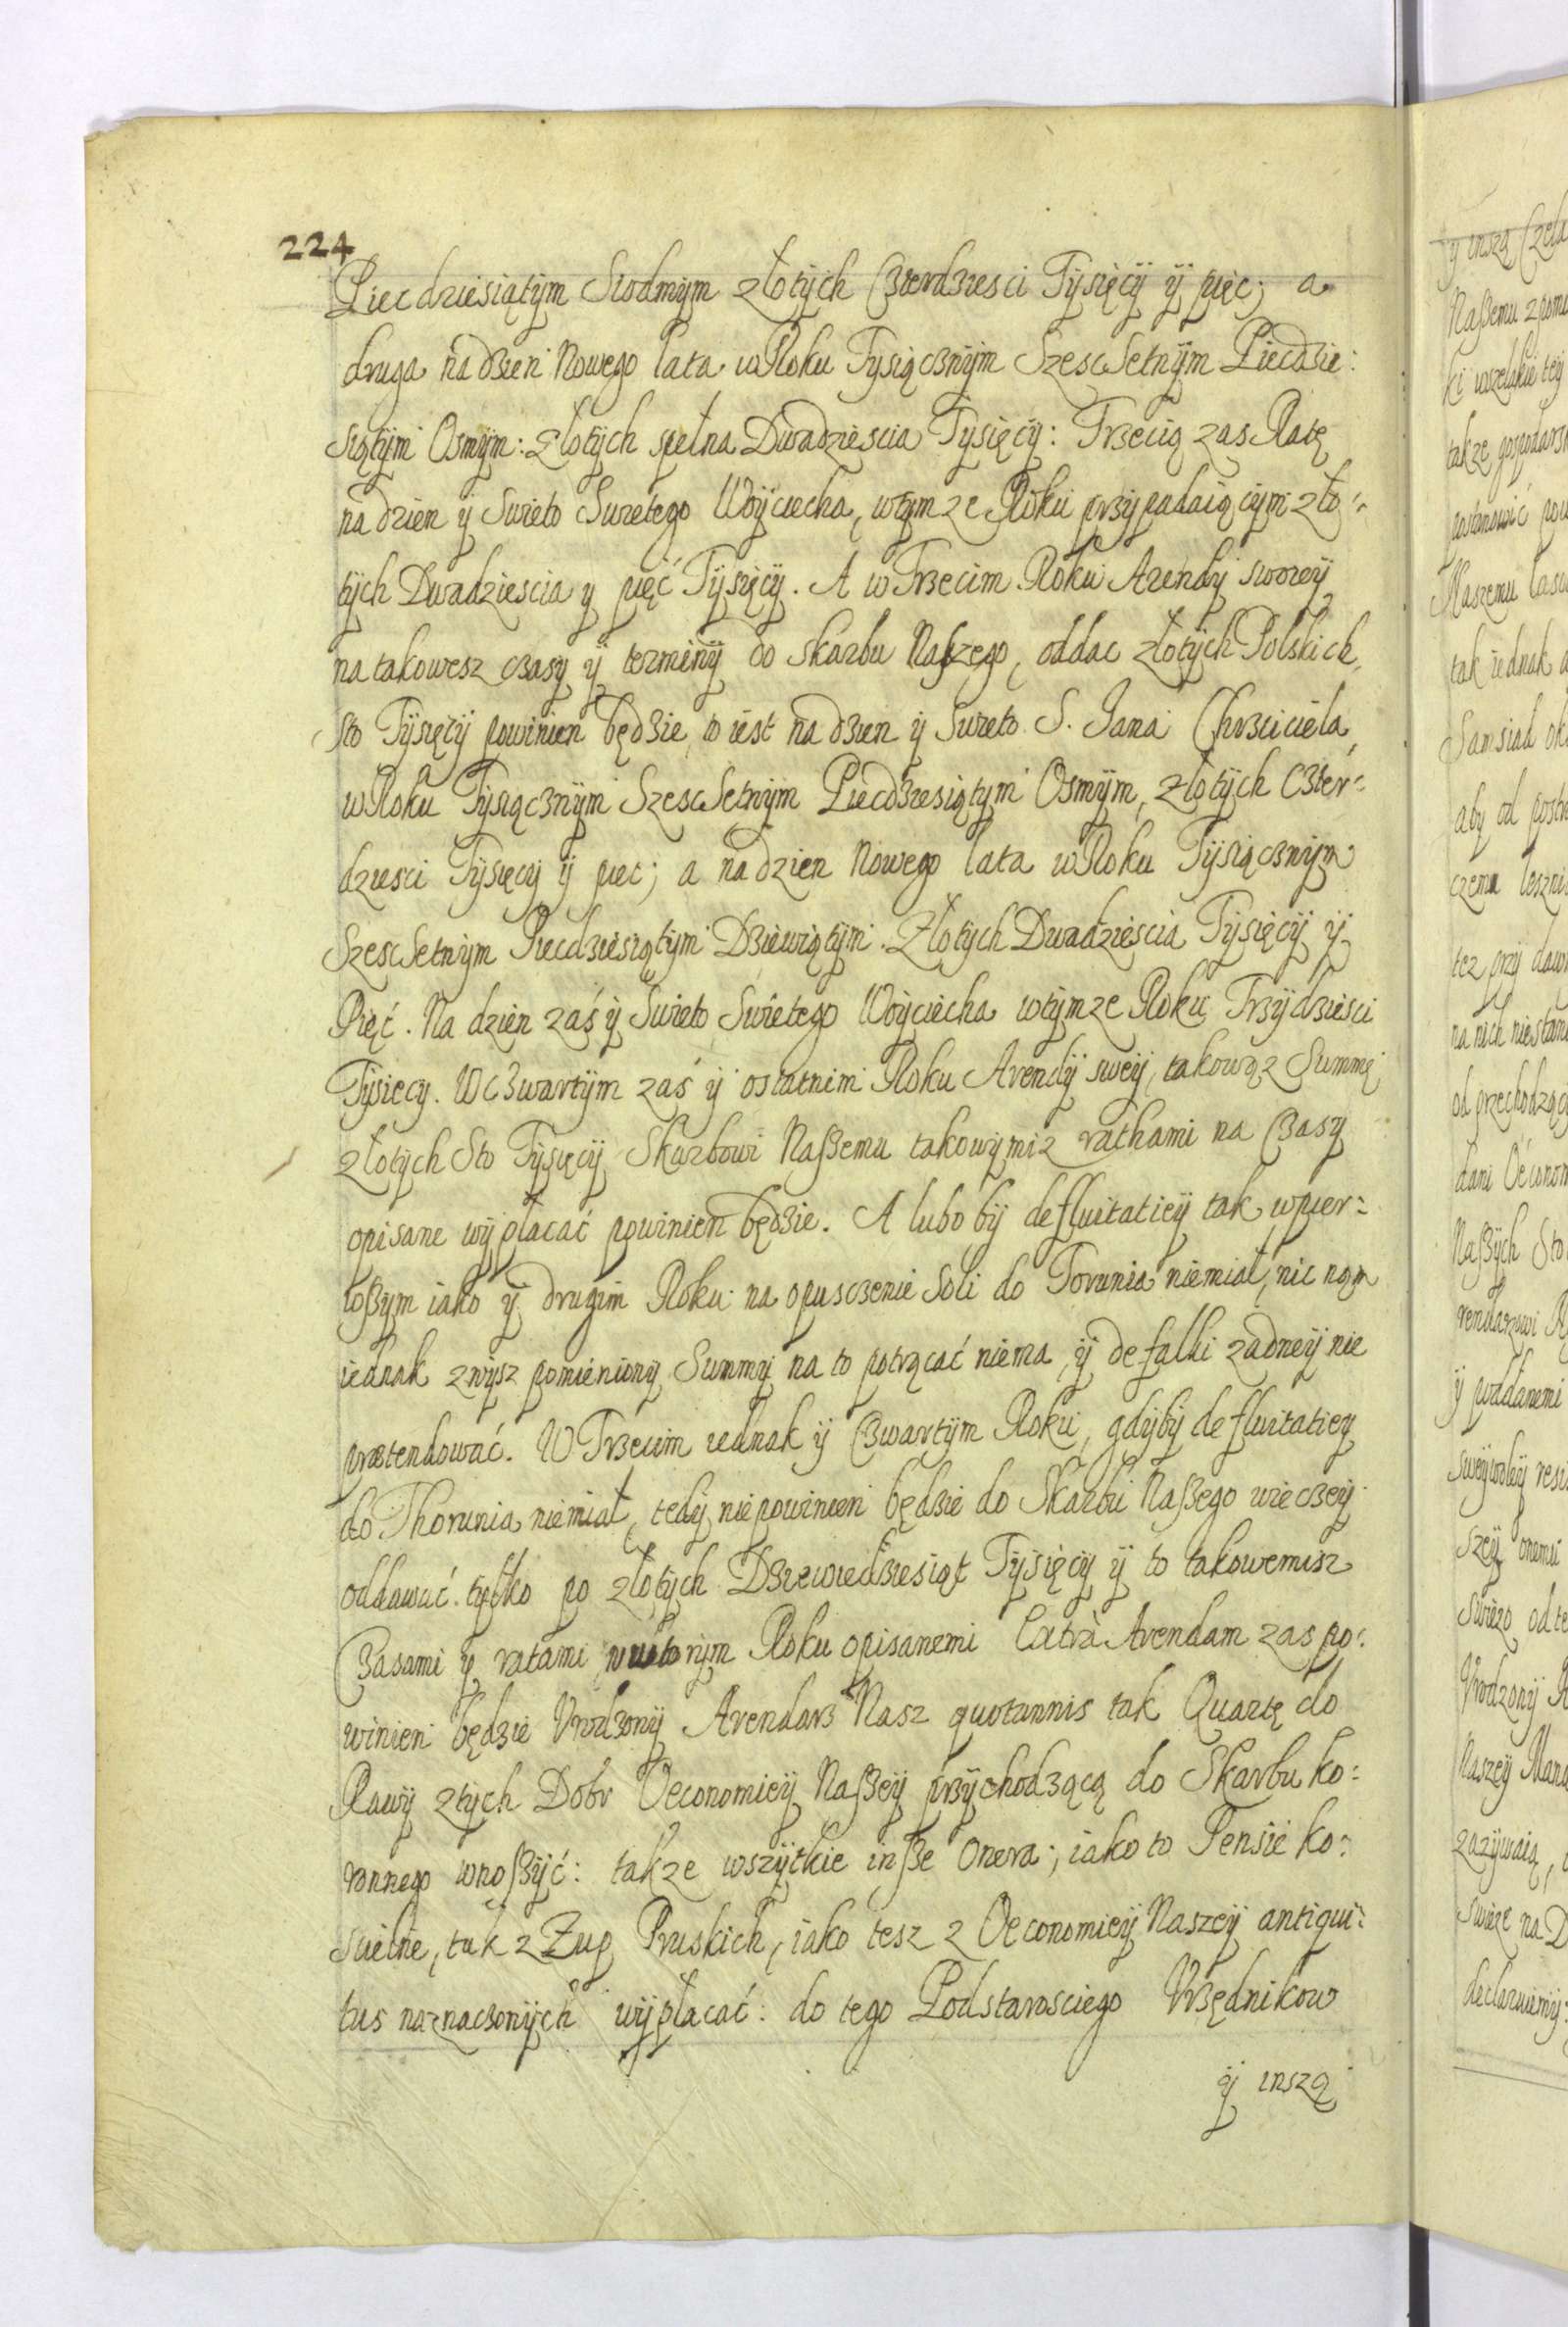 224
Piecdziesiątym Siodmym złotych Czterdziesci Tysięcy y pięc; a
druga na dzien Nowego lata w Roku Tysiącznym Szescsetnym Piecdzie:
siątym Osmym: złotych spełna Dwadziescia Tysięcy: Trzecią zas Ratę
na dzien y Swieto Swietego Woyciecha, w tym ze Roku przypadaiącym zło:
tych Dwadziescia y pięć Tysięcy. A w Trzecim Roku Arendy swoiey
na takowesz czasy y terminy do skarbu Naszego, oddac złotych Polskich
Sto Tysięcy powinien będzie, to iest na dzien y Swieto S. Jana Chrzciciela
w Roku Tysiącznym Szescsetnym Piecdziesiątym Osmym, złotych Czter:
dziesci Tysięcy y piec; a na dzien Nowego lata w Roku Tysiącznym
Szescsetnym Piecdziesiątym Dziewiątym. Złotych Dwadziescia Tysięcy y
Pięć. Na dzien zaś y Swieto Swietego Woyciecha w tymze Roku Trzydziesci
Tysiecy. W Czwartym zaś y ostatnim Roku Arendy swey, takowąz Summę
złotych Sto Tysięcy Skarbowi Naszemu takowymiz rathami na Czasy
opisane wypłacać powinien będzie. A lubo by defluitatiey tak w pier:
wszym iako y drugim Roku na opusczenie Soli do Torunia niemiał, nic nam
iednak z wysz pomieniony Summy na to potrącać niema, y defalki zadney nie
prætendować. W Trzecim iednak y Czwartym Roku, gdyby defluitatiey
do Thorunia niemiał, tedy niepowinien będzie do Skarbu Naszego wieczey
oddawać tylko po złotych Dziewiedziesiąt Tysięcy y to takowemisz
Czasami y ratami w wtorym Roku opisanemi Extrà Arendam zas po:
winien będzie Vrodzony Arendarz Nasz quotannis tak Quartę do
Rawy z tych Dobr Oeconomiey Naszey przychodzącą do Skarbu ko:
ronnego wnoszyć: takze wszytkie insze Onera; iako to Pensie ko:
scielne, tak z Zup Pruskich, iako tesz z Oeconomiey Naszey antiqui:
tus naznaczonych wypłacać: do tego Podstarosciego Vrzędnikow
y inszą